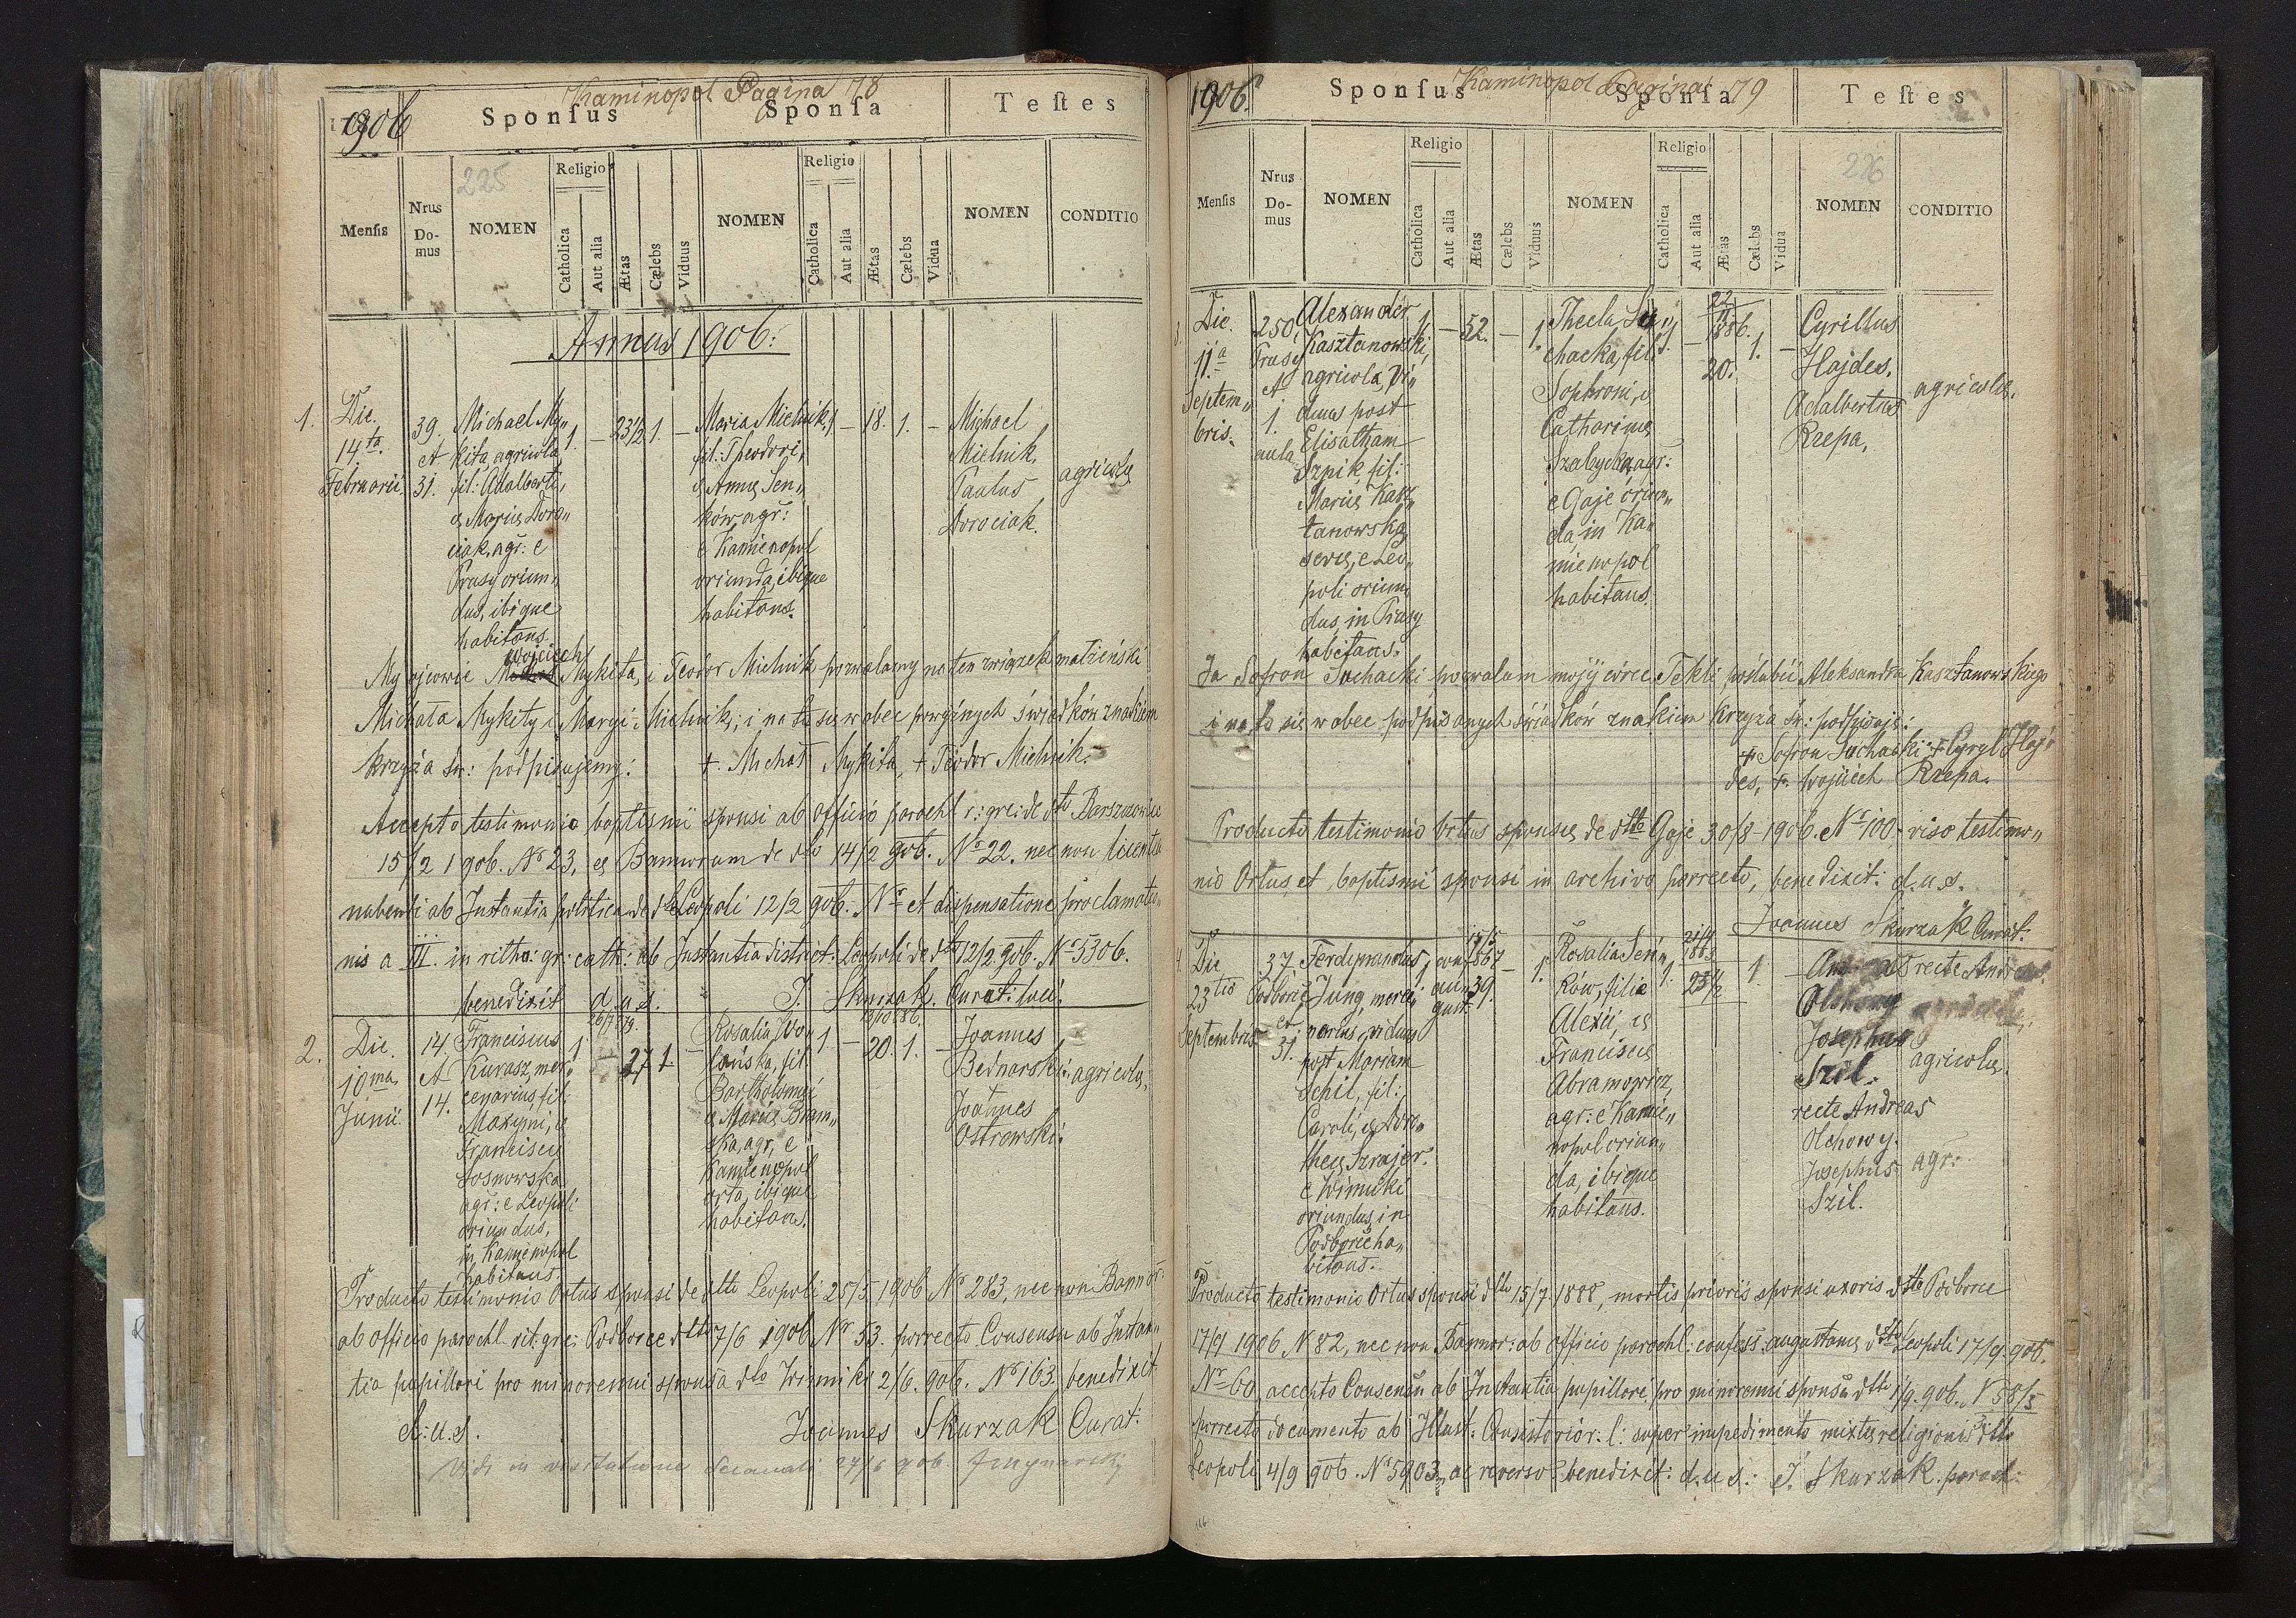 Kaminopol Pagina 78
1906
Sponſus
Sponſa
Teſtes
225
Menſis
Nrus Domus
NOMEN
Religio
Catholica
Aut alia
Ætas
Cælebs
Viduus
NOMEN
Religio
Catholica
Aut alia
Ætas
Cælebs
Vidua
NOMEN
CONDITIO
Annus 1906:
1.
Die.
14ta.
Februarii.
39.
et
31.
Michael My„
kita, agricola,
fil: Adalberti,
et Mariæ Doro„
ciak, agr: e
Prusy oriun„
dus, ibique
habitans.
1. – 23½ 1. –
Maria Mielnik,
fil: Theodori,
et Annæ Sen„
ków, agr:
e Kamienopol
oriunda, ibique
habitans.
1 – 18. 1. –
Michael
Mielnik,
Paulus
Dorociak.
agricolæ
Wojciech
My ojcowie Mykita, i Teodor Mielnik pozwalamy na ten związek małżeński
Michała Mykity i Maryi Mielnik; i na to się wobec świadków znakiem
krzyża św: podpisujemy: +. Michał Mykita, + Teodor Mielnik.
Accepto testimonio baptismi sponsi ab officio parochl r: gr: de dto Barszczowice
15/2 1906. No 23, et Bannorum de dto 14/2 906. No 22. nec non licentia
nubendi ab Instantia politica de dto Leopoli 12/2 906. No et dispensatione proclamatio„
nis a III. in ritho: gr: cath: ab Instantia district: Leopoli de dto 12/2 906. No 5306.
benedixit d. u. s. J. Skurzak. Curat: loci.
2.
Die.
10ma
Junii.
14.
et
14.
Franciscus
Kurasz, mer„
cenarius, fil:
Maxymi, et
Franciscæ
Sosnowska
agr: e Leopoli
oriundus,
in Kamienopol
habitans.
26/7 879.
1. – 27 1. –
Rosalia Wo„
lańska, fil:
Bartholomei
et Mariæ
agr, e
Kamienopol
orta, ibique
habitans.
13/10 886.
1 – 20. 1. –
Joannes
Bednarski.
Joannes
Ostrowski.
agricolæ,
Producto testimonio Ortus sponsi de dtto Leopoli 25/5 1906 No 283, nec non Bannor:
ab officio parochl. rit: gr: Podborce dtto 7/6 1906 No 53. porrecto Consensu ab Instan„
tia pupillari pro minorenni sponsa dto Winniki 2/6. 906. No 163. benedixit
d: u. s. Joannes Skurzak Curat:
Vidi in visitatione decanali 27/6 906.
Kaminopol Pagina 79
1906.
Sponſus
Sponſa
Teſtes
226
Menſis
Nrus Domus
NOMEN
Religio
Catholica
Aut alia
Ætas
Cælebs
Viduus
NOMEN
Religio
Catholica
Aut alia
Ætas
Cælebs
Vidua
NOMEN
CONDITIO
3.
Die.
11.a
Septem„
bris.
250.
Prusy
et
1.
aula
Alexander
Kasztanowski,
agricola, Vi„
duus post
Elisabham
Szpik, fil:
Mariæ Kasz„
tanowska
e Leo„
poli oriun„
dus, in Prusy
habitans.
1 – 52. – 1.
Thecla Su„
chacka, fil:
Sophroni, et
Catharinæ
agr:
e Gaje oriun„
da, in Ka„
mienopol
habitans.
22/ 886.
1. – 20. 1. –
Cyrillus
Hajdes.
Adalbertus
Rzepa,
agricolæ.
Ja Sofron Suchacki pozwalam mojej córce Tekli poślubić Aleksandra Kasztanowskiego
i na to się wobec podpisanych świadków znakiem krzyża św: podpisuję:
+ Sofron Suchacki + Cyryl Haj„
des, + Wojciech Rzepa.
Producto testimonio Ortus sponsæ de dtto Gaje 30/8 – 1906. No 100, viso testimo„
nio Ortus et baptismi sponsi in archivo porrecto, benedixit: d. u. s.
Joannes Skurzak Curat:
4.
Die
23tio
Septembris
37
Podborce
et
31.
Ferdynandus
Jung, merce„
narius, viduus
post Mariam
Schil, fil:
Caroli, et Doro„
theæ Szrajer.
e Winniki
oriundus, in
Podborce ha„
bitans.
1 conf au„ gust. 15/5 867 39. – 1.
Rosalia Sen„
ków, filia
Alexii, et
Franciscæ
Abramowicz,
agr: e Kamie„
nopol oriun„
da, ibique
habitans.
21/4 1883
1. – 23½ 1. –
recte Andreas
Olchowy
Josephus
Szil.
recte Andreas
Olchowy.
Josephus
Szil.
agricolæ.
agr:
Producto testimonio Ortus sponsi dtto 15/7 1888, mortis prioris sponsi uxoris dtto Podborce
17/9 1906 N 82, nec non Bannor: ab officio parochl: confess: augustanæ dtto Leopoli 17/9. 906.
No 60, accepto Consensu ab Instantia pupillari pro minorenni sponsa dtto 1/9. 906. N 58/5
porrecto documento ab Illust: Consistorio r. l: super impedimento mixtæ religionis dtto
Leopoli 4/9 906. No 5903, ac reverso benedixit: d. u. s.: J. Skurzak. paroch: